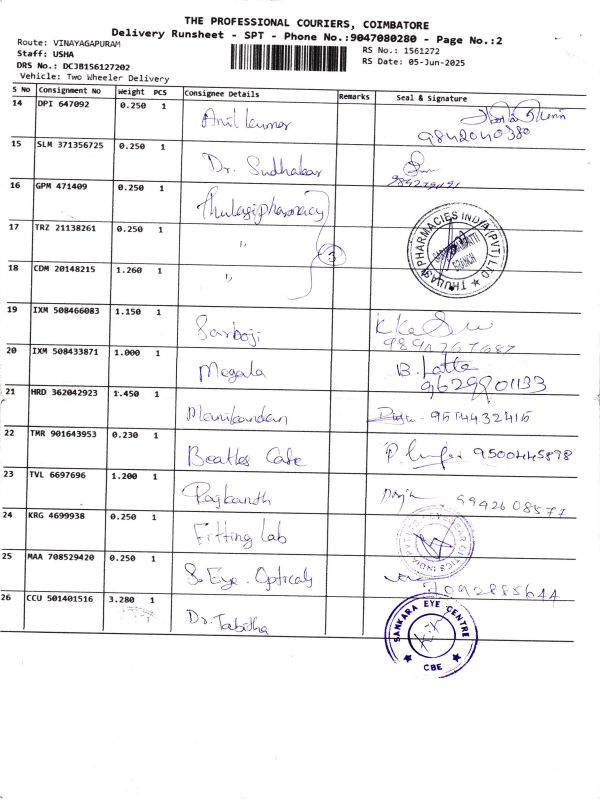 THE PROFESSIONAL COURIERS, COIMBATORE
Delivery Runsheet - SPT - Phone No.:9047080280 - Page No.:2
Route: VINAYAGAPURAM
Staff: USHA
DRS No.: DC3B156127202
Vehicle: Two Wheeler Delivery
RS No.: 1561272
RS Date: 05-Jun-2025
S No Consignment No Weight PCS Consignee Details Remarks Seal & Signature
14 DPI 647092 0.250 1 Anil kumar
9842040380
15 SLM 371356725 0.250 1 Dr. Sudhakar
16 GPM 471409 0.250 1 Thulasi pharmacy
17 TRZ 21138261 0.250 1 "
3
THULASI PHARMACIES INDIA (PVT) LTD
BRANCH
18 CDM 20148215 1.260 1 "
19 IXM 508466083 1.150 1 Sarboji
20 IXM 508433871 1.000 1 Megala B. Latta
9629801133
21 HRD 362042923 1.450 1 Manikandan 9514432415
22 TMR 901643953 0.230 1 Beatles Cafe 9500445898
23 TVL 6697696 1.200 1 Ragkanth 9942608577
24 KRG 4699938 0.250 1 Fitting lab
25 MAA 708529420 0.250 1 S. Eye. Opticals 7092885644
26 CCU 501401516 3.280 1 Dr. Tabitha
SANKARA EYE CENTRE
CBE